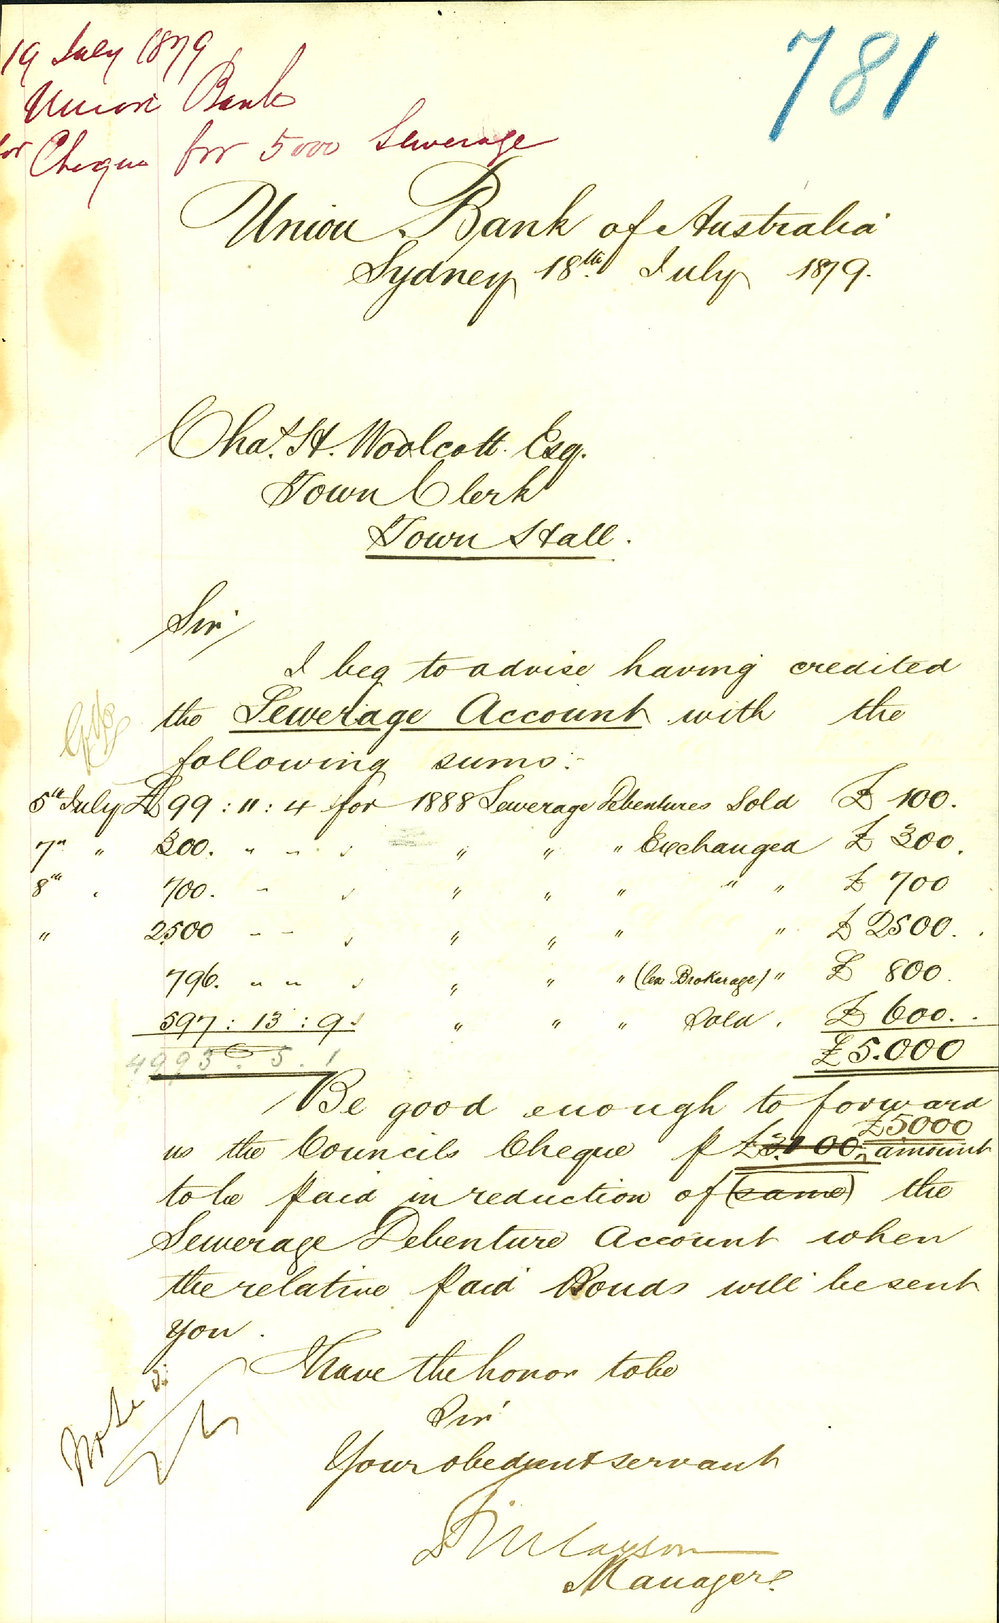 19 July 1879
781
Union Bank
for Cheque for 5000 Sewerage
Union Bank of Australia
Sydney 18th July 1879.
Chas. H. Woolcott. Esq.
Town Clerk
Town Hall.
Sir
I beg to advise having credited
the Sewerage Account with the
following sums:
5th July £99:11:4 for 1888 Sewerage Debentures Sold £100.
7th " 300. " " " " " " Exchanged £300.
8th " 700. " " " " " " " £700
" 2500 " " " " " " " £2500.
796. " " " " " " (less Brokerage) " £800.
597:13:9 " " " " Sold. £600.
4993. 5. 1 £5.000
Be good enough to forward
£5000
us the Councils Cheque p £3100. amount
to be paid in reduction of (same) the
Sewerage Debenture Account when
the relative paid Bonds will be sent
you.
I have the honor to be
Sir
Your obedient servant
Finlayson
Manager.
Note